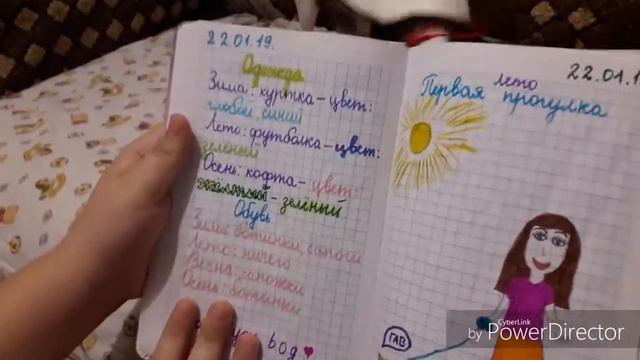 22.01.19.
Одежда
Зима: куртка – цвет:
синий
Лето: футболка – цвет:
зелёный
Осень: кофта – цвет:
жёлтый – зелёный
Обувь
Зима: ботинки, сапоги
Лето: ничего
Весна: сапожки
Осень: ботинки
год
22.01.1
лето
Первая прогулка
ГАВ
CyberLink
by PowerDirector